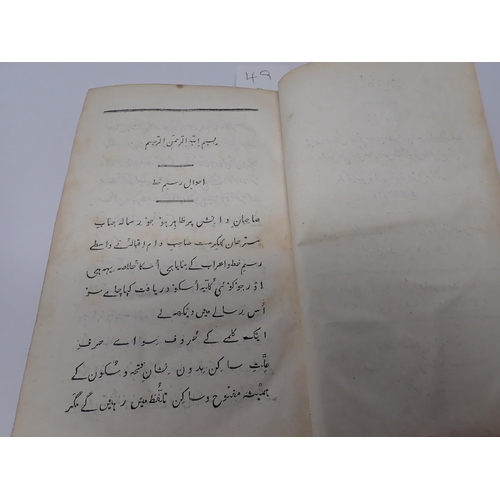 49
بسم الله الرحمن الرحيم
احوال رسم خط
صاحبان دانش پر ظاہر ہو جو رسالہ جناب
مسترجان گلکرست صاحب دام اقبالہ نے واسطے
رسم خط و اعراب کے بنایا ہی اُسکا خلاصہ یہہ ہی
اور جو کوئی کُلّیۃ اُسکو دریافت کیا چاہے سو
اُس رسالے میں دیکھہ لے
ایک کلمے کے حُروف سواے حرف
عِلّتِ ساکِن بِدونِ نِشان فتحہ و سُکون کے
ہمیشہ مفتوح و ساکِن تلفُّظ میں رہیں گے مگر